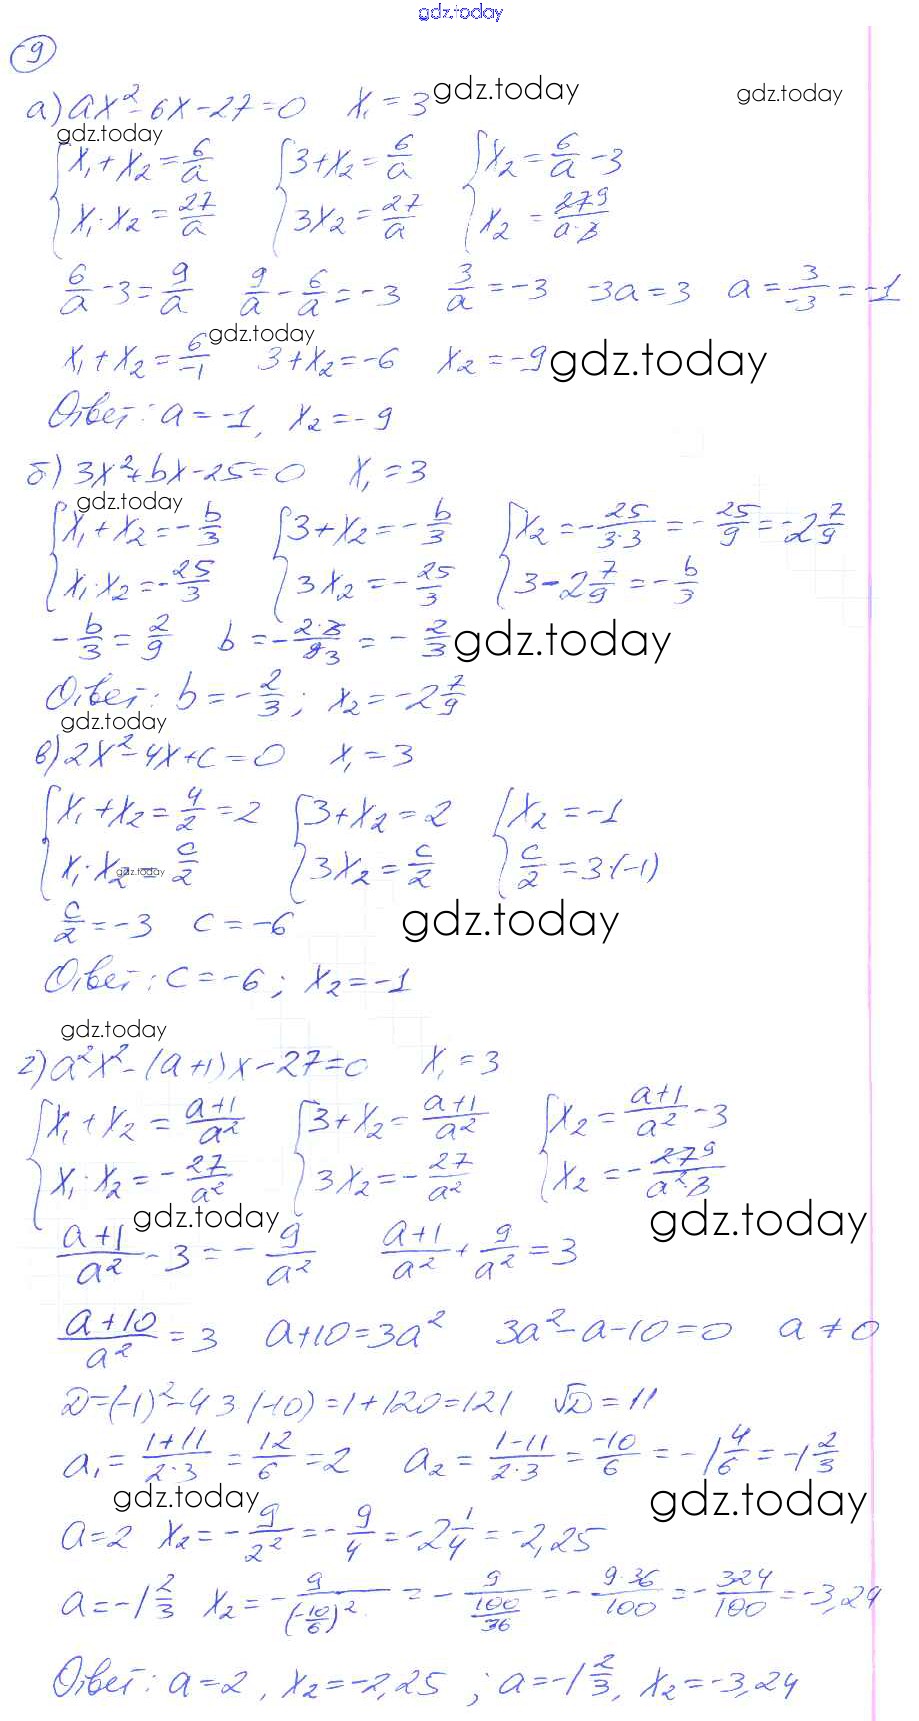 gdz.today
9
а) ax² - 6x - 27 = 0   x₁ = 3   gdz.today   gdz.today
gdz.today
{ x₁ + x₂ = 6/a   { 3 + x₂ = 6/a   { x₂ = 6/a - 3
x₁ · x₂ = 27/a   3x₂ = 27/a   x₂ = 27 9/(a·3)
6/a - 3 = 9/a   9/a - 6/a = -3   3/a = -3   -3a = 3   a = 3/-3 = -1
gdz.today
x₁ + x₂ = 6/-1   3 + x₂ = -6   x₂ = -9   gdz.today
Ответ: a = -1, x₂ = -9
б) 3x² + bx - 25 = 0   x₁ = 3
gdz.today
{ x₁ + x₂ = -b/3   { 3 + x₂ = -b/3   { x₂ = -25/(3·3) = -25/9 = -2 7/9
x₁ · x₂ = -25/3   3x₂ = -25/3   3 - 2 7/9 = -b/3
-b/3 = 2/9   b = -2·3/9 3 = -2/3   gdz.today
Ответ: b = -2/3; x₂ = -2 7/9
gdz.today
в) 2x² - 4x + c = 0   x₁ = 3
{ x₁ + x₂ = 4/2 = 2   { 3 + x₂ = 2   { x₂ = -1
x₁ · x₂ = c/2   3x₂ = c/2   c/2 = 3·(-1)
gdz.today
c/2 = -3   c = -6   gdz.today
Ответ: c = -6; x₂ = -1
gdz.today
г) a²x² - (a+1)x - 27 = 0   x₁ = 3
{ x₁ + x₂ = (a+1)/a²   { 3 + x₂ = (a+1)/a²   { x₂ = (a+1)/a² - 3
x₁ · x₂ = -27/a²   3x₂ = -27/a²   x₂ = -27 9/(a²·3)
gdz.today   gdz.today
(a+1)/a² - 3 = -9/a²   (a+1)/a² + 9/a² = 3
(a+10)/a² = 3   a+10 = 3a²   3a² - a - 10 = 0   a ≠ 0
D = (-1)² - 4 3 (-10) = 1 + 120 = 121   √D = 11
a₁ = (1+11)/(2·3) = 12/6 = 2   a₂ = (1-11)/(2·3) = -10/6 = -1 4/6 = -1 2/3
gdz.today   gdz.today
a = 2   x₂ = -9/2² = -9/4 = -2 1/4 = -2,25
a = -1 2/3   x₂ = -9/(-10/6)² = -9/(100/36) = -9·36/100 = -324/100 = -3,24
Ответ: a = 2, x₂ = -2,25; a = -1 2/3, x₂ = -3,24